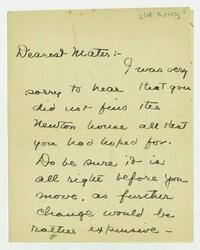 Dearest Mater:-
I was very
sorry to hear that you
did not find the
Newton house all that
you had hoped for.
Do be sure it is
all right before you
move, as further
change would be
rather expensive -